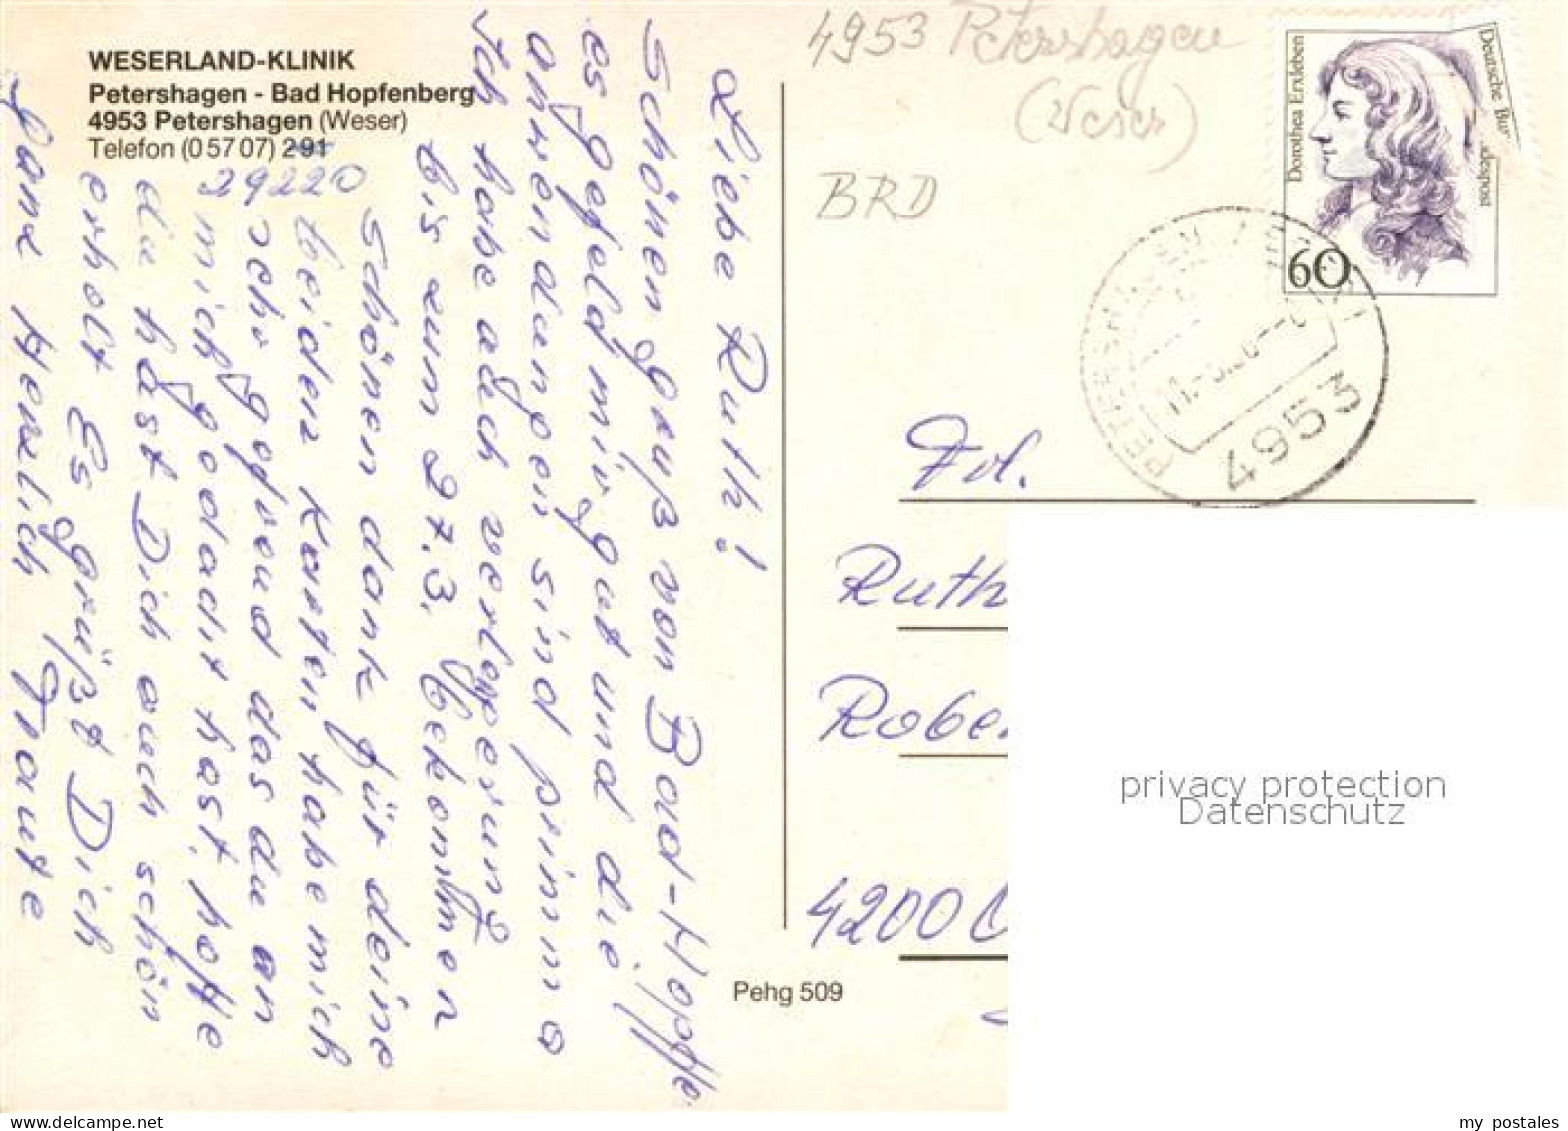 WESERLAND-KLINIK
Petershagen - Bad Hopfenberg
4953 Petershagen (Weser)
Telefon (0 57 07) 291
29220
Liebe Ruth!
Schönen Gruß von Bad-Hopffe.
es gefeld mir gut und die
anwendungen sind prima
Ich habe auch verlängerung
bis zum 27.3. bekommen
Schönen dank für deine
beiden Karten, habe mich
sehr gefreud das du an
mich gedacht hast, hoffe
du hast Dich auch schön
erholt Es grüßt Dich
Ganz Herzlich Traute
4953 Petershagen
(Weser)
BRD
Dorothea Erxleben
Deutsche Bun
despost
60
4953
Frl.
Ruth
Robe
4200
Pehg 509
privacy protection
Datenschutz
my postales